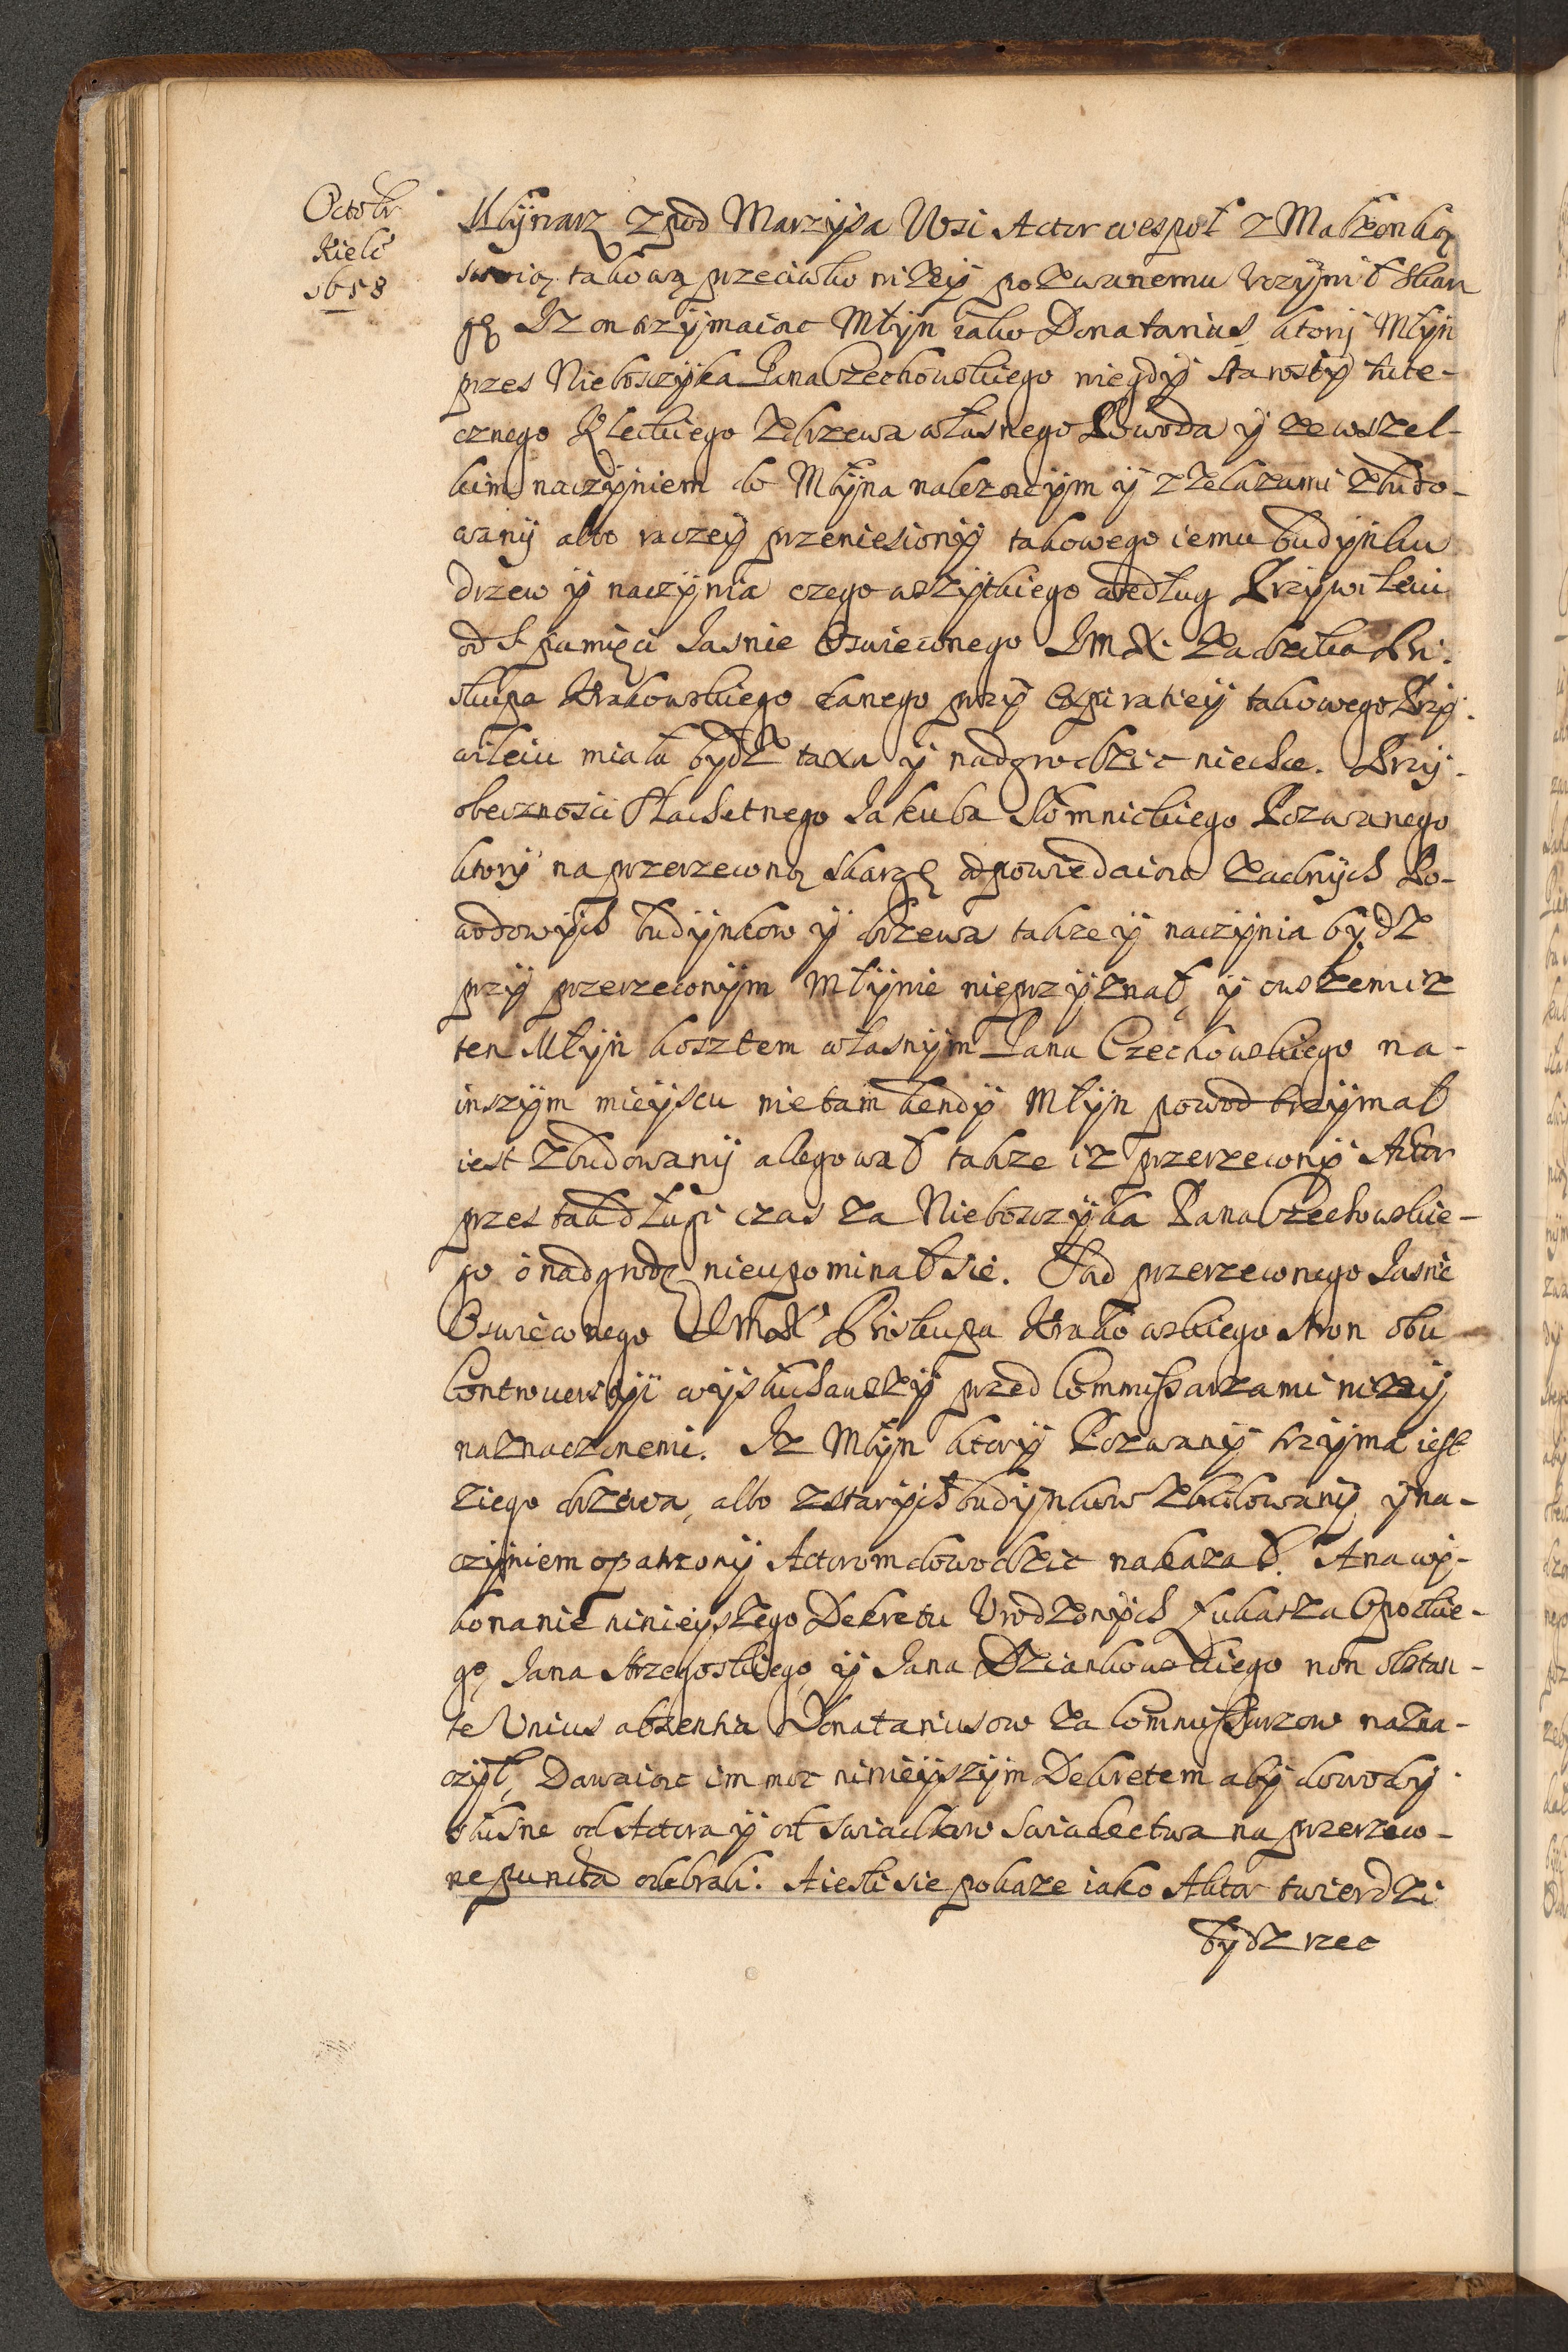 Octobr
Kielc
1658
Młÿnarz z pod Marzÿsa Wsi Actor wespoł z Małżonką
swoią takową przeciwko niżeÿ pozwanemu vczÿnił skar
gę Iz on trzÿmaiąc Młÿn iako Donatarius, ktorÿ Młÿn
przes Nieboszczÿka Pana Czechowskiego niegdÿ Starostÿ tute-
cznego Kieleckiego zdrzewa własnego Powoda ÿ ze wszel-
kim naczÿniem do Młÿna nalezącÿm ÿ z Zelazami zbudo-
wanÿ albo raczeÿ przeniesionÿ takowego iemu budÿnku
drzew ÿ naczÿnia czego wszÿtkiego według Przÿwileiu
od S. pamięci Jasnie Oswieconego Zadzika Bi-
skupa Krakowskiego danego przÿ Expiratieÿ takowego Przÿ-
wileiu miała bÿdz taxa ÿ nadgrodzic niechce. Przÿ-
obecznosci Slachetnego Jakuba Słomnickiego Pozwanego
ktorÿ na przerzeconą skargę odpowiedaiąc zadnÿch Po-
wodowÿch budÿnkow ÿ drzewa takze ÿ naczÿnia bÿdz
przÿ przerzeconÿm Młÿnie nieprzÿznał, ÿ owszem iz
ten Młÿn kosztem własnÿm Pana Czechowskiego na-
inszÿm mieÿscu nie tam kendÿ Młÿn powod trzÿmał
iest zbudowanÿ allegował takze iz przerzeconÿ Aktor
przes tak długi czas za Nieboszczÿka Pana Czechowskie-
go o nadgrodę nieupominał sie. Sąd przerzeconego Jasnie
Oswieconego Biskupa Krakowskiego stron obu
Controuersÿi wÿsłuchawszÿ przed Commissarzami nizeÿ
naznaczonemi. Iz Młÿn ktorÿ Pozwanÿ trzÿma iest
ziego drzewa, albo zstarÿch budÿnkow zbudowanÿ, ÿ na-
czÿniem opatrzonÿ Actorom dowodzic nakazał. A na wÿ-
konanie ninieÿszego Dekretu Vrodzonÿch Łukasza Opockie-
go, Jana Strzegoskiego, ÿ Jana Dziankowskiego non obstan-
te Vnius absentia Donatariusow za Commissarzow nazna-
czÿł, Dawaiąc im moc ninieÿszÿm Dekretem abÿ dowodÿ
słusne od Actora ÿ od swiadkow swiadectwa na przerzeco-
ne puncta odebrali. A iesli sie pokaze iako Aktor twierdzi
bÿdz rzec